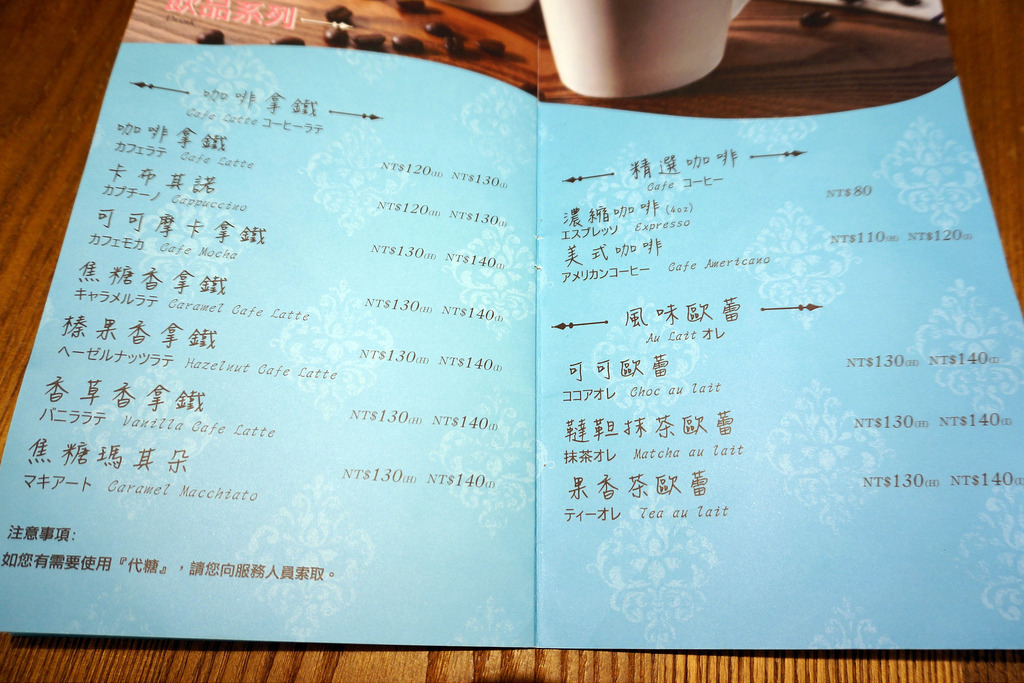 飲品系列
Drink
咖啡拿鐵
Cafe Latte コーヒーラテ
咖啡拿鐵
カフェラテ Cafe Latte
NT$120(H) NT$130(I)
卡布其諾
カプチーノ Cappuccino
NT$120(H) NT$130(I)
可可摩卡拿鐵
カフェモカ Cafe Mocha
NT$130(H) NT$140(I)
焦糖香拿鐵
キャラメルラテ Caramel Cafe Latte
NT$130(H) NT$140(I)
榛果香拿鐵
ヘーゼルナッツラテ Hazelnut Cafe Latte
NT$130(H) NT$140(I)
香草香拿鐵
バニララテ Vanilla Cafe Latte
NT$130(H) NT$140(I)
焦糖瑪其朵
マキアート Caramel Macchiato
NT$130(H) NT$140(I)
注意事項:
如您有需要使用『代糖』，請您向服務人員索取。
精選咖啡
Cafe コーヒー
濃縮咖啡(4oz)
エスプレッソ Expresso
NT$80
美式咖啡
アメリカンコーヒー Cafe Americano
NT$110(H) NT$120(I)
風味歐蕾
Au Lait オレ
可可歐蕾
ココアオレ Choc au lait
NT$130(H) NT$140(I)
韃靼抹茶歐蕾
抹茶オレ Matcha au lait
NT$130(H) NT$140(I)
果香茶歐蕾
ティーオレ Tea au lait
NT$130(H) NT$140(I)